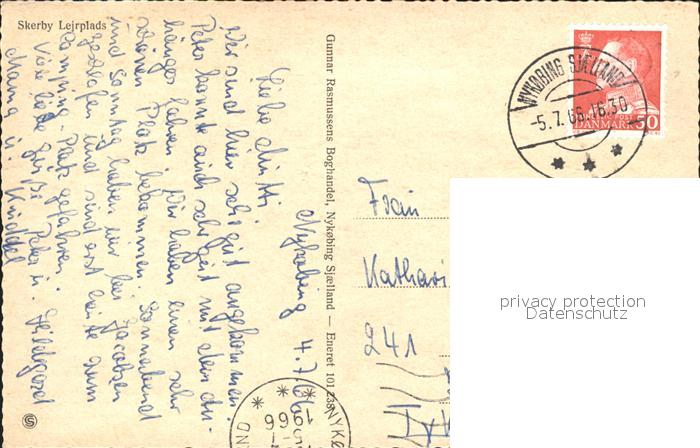 Skerby Lejrplads
Nykøbing 4.7.66
Liebe Mutti.
Wir sind hier sehr gut angekommen.
Peter konnte auch sehr gut mit dem An-
hänger fahren. Wir haben einen sehr
schönen Platz bekommen. Sonnabend
und Sonntag haben wir bei Jacobsen
geschlafen und sind erst heute zum
Camping-Platz gefahren.
Viele liebe Grüße Peter u. Hildegard
Mama u. Kinder
Gunnar Rasmussens Boghandel, Nykøbing Sjælland — Eneret 101 238
NYKØBING SJÆLLAND
-5.7.66.16.30
DANMARK 50
Frau
Kathari
241
privacy protection
Datenschutz
NYKØ